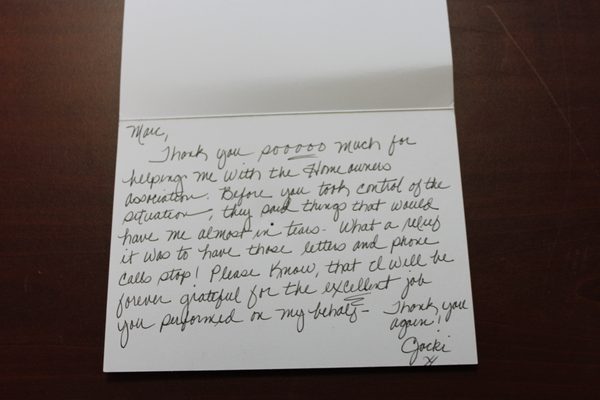 Marc,
Thank you sooooo much for
helping me with the Homeowners
association. Before you took control of the
situation, they said things that would
have me almost in tears. What a relief
it was to have those letters and phone
calls stop! Please Know, that I will be
forever grateful for the excellent job
you performed on my behalf - Thank you
again!
Jacki